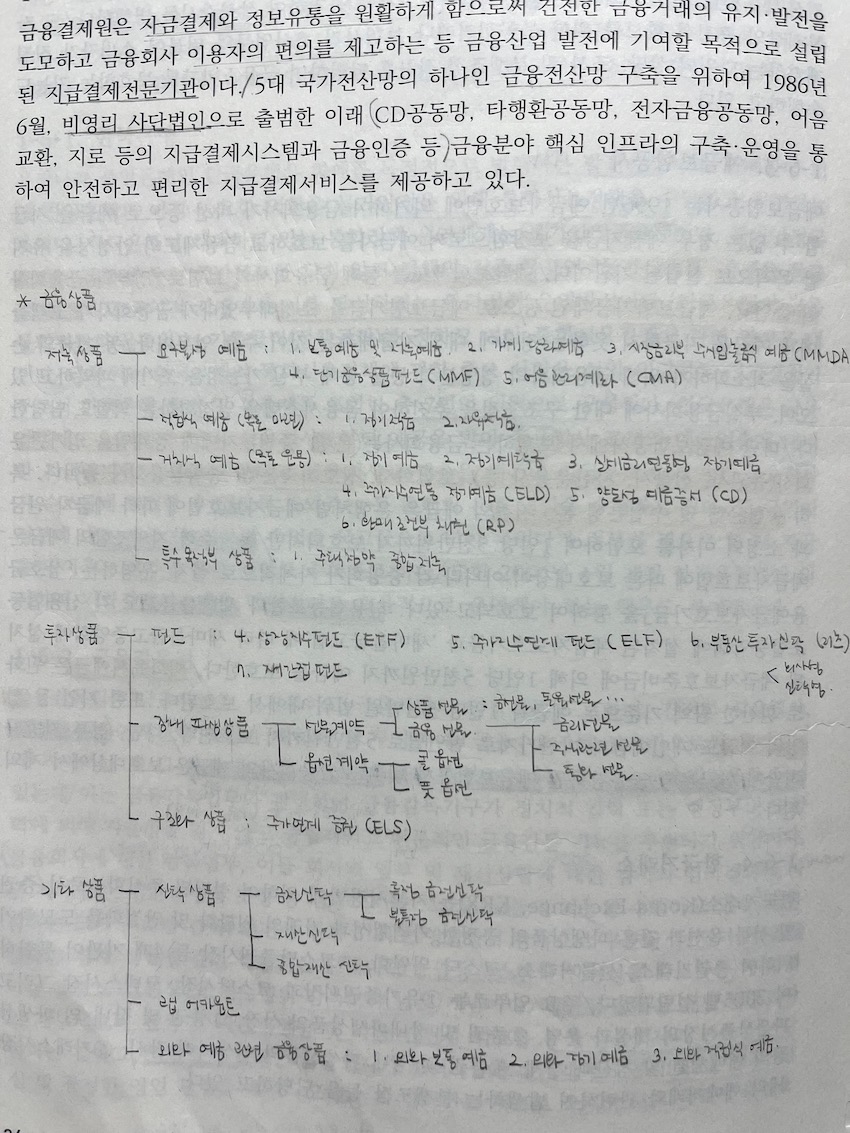 금융결제원은 자금결제와 정보유통을 원활하게 함으로써 건전한 금융거래의 유지·발전을
도모하고 금융회사 이용자의 편의를 제고하는 등 금융산업 발전에 기여할 목적으로 설립
된 지급결제전문기관이다./5대 국가전산망의 하나인 금융전산망 구축을 위하여 1986년
6월, 비영리 사단법인으로 출범한 이래 (CD공동망, 타행환공동망, 전자금융공동망, 어음
교환, 지로 등의 지급결제시스템과 금융인증 등)금융분야 핵심 인프라의 구축·운영을 통
하여 안전하고 편리한 지급결제서비스를 제공하고 있다.
* 금융상품
저축상품 요구불성 예금 : 1. 보통예금 및 저축예금, 2. 가계당좌예금 3. 시장금리부 수시입출금식 예금 (MMDA
4. 단기금융상품펀드 (MMF) 5. 어음관리계좌 (CMA)
적립식 예금 (목돈 마련) : 1. 정기적금 2. 자유적금.
거치식 예금 (목돈 운용) : 1. 정기예금 2. 정기예탁금 3. 실세금리연동형 정기예금
4. 주가지수연동 정기예금 (ELD) 5. 양도성 예금증서 (CD)
6. 환매조건부 채권 (RP)
특수목적부 상품 : 1. 주택청약 종합저축
투자상품 펀드 : 4. 상장지수펀드 (ETF) 5. 주가지수연계 펀드 (ELF) 6. 부동산투자신탁 (리츠)
7. 재간접펀드 회사형
신탁형.
장내 파생상품 선물계약 상품선물 : 금선물, 돈육선물 ...
금융선물 금리선물
주식관련선물
옵션계약 콜옵션 통화선물.
풋옵션
구조화 상품 : 주가연계 증권 (ELS)
기타 상품 신탁상품 금전신탁 특정 금전신탁
불특정 금전신탁
재산신탁
종합재산 신탁
랩 어카운트
외화 예금 관련 금융상품 : 1. 외화 보통 예금 2. 외화 정기 예금 3. 외화 적립식 예금.